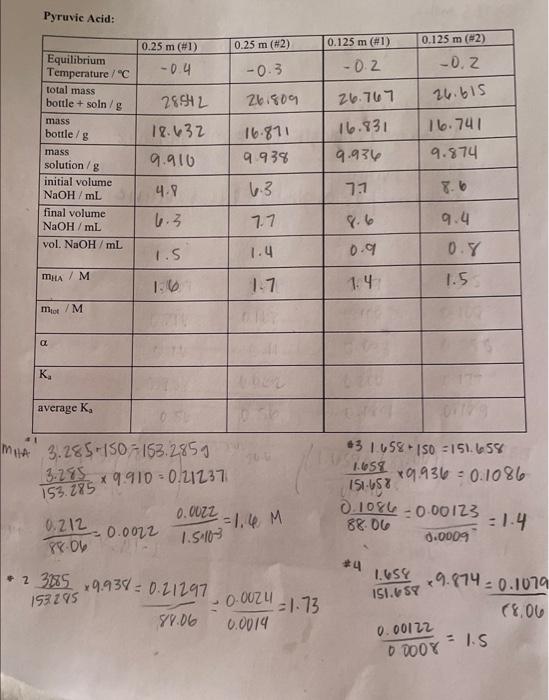 Pyruvic Acid:
0.25 m (#1) 0.25 m (#2) 0.125 m (#1) 0.125 m (#2)
Equilibrium Temperature / °C -0.4 -0.3 -0.2 -0.2
total mass bottle + soln / g 28542 26.809 26.767 26.615
mass bottle / g 18.632 16.871 16.831 16.741
mass solution / g 9.910 9.938 9.936 9.874
initial volume NaOH / mL 4.8 6.3 7.7 8.6
final volume NaOH / mL 6.3 7.7 8.6 9.4
vol. NaOH / mL 1.5 1.4 0.9 0.8
mHA / M 1.6 1.7 1.4 1.5
mtot / M
α
Ka
average Ka
#1
mHA 3.285+150=153.285g
3.285/153.285 × 9.910 = 0.21237
0.212/88.06 = 0.0022 0.0022/1.5·10⁻³ = 1.6 M
#2 3285/153285 × 9.938 = 0.21297/88.06 = 0.0024/0.0014 = 1.73
#3 1.658 + 150 = 151.658
1.658/151.658 × 9.936 = 0.1086
0.1086/88.06 = 0.00123/0.0009 = 1.4
#4 1.658/151.658 × 9.874 = 0.1079/88.06
0.00122/0.0008 = 1.5